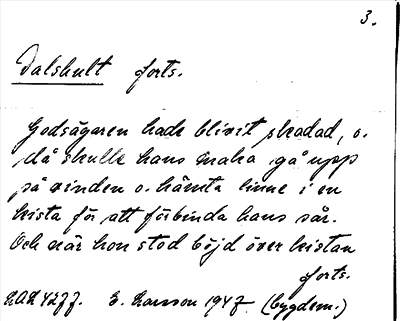 3.
Dalshult forts.
Godsägaren hade blivit skadad, o.
då skulle hans maka gå upp
på vinden o. hämta linne i en
kista för att förbinda hans sår.
Och när hon stod böjd över kistan
forts.
E. Larsson 1947. (bygdem.)